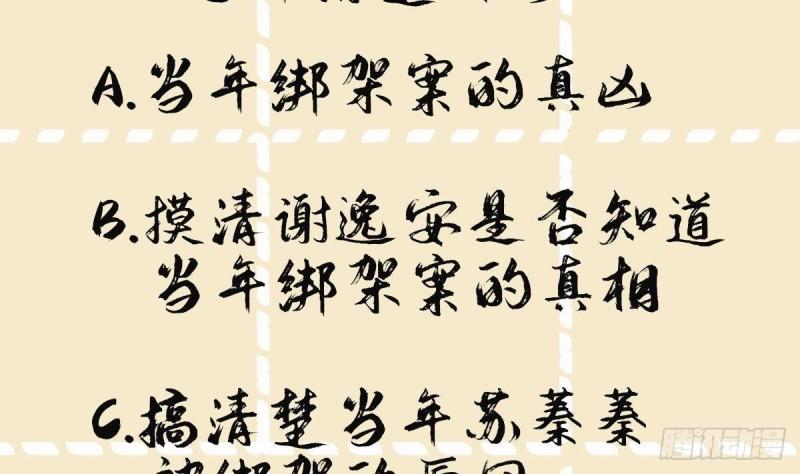 A.当年绑架案的真凶
B.摸清谢逸安是否知道
当年绑架案的真相
C.搞清楚当年苏蓁蓁
腾讯动漫